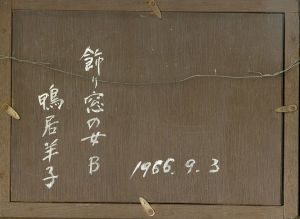 飾り窓の女B
鴨居羊子
1966.9.3